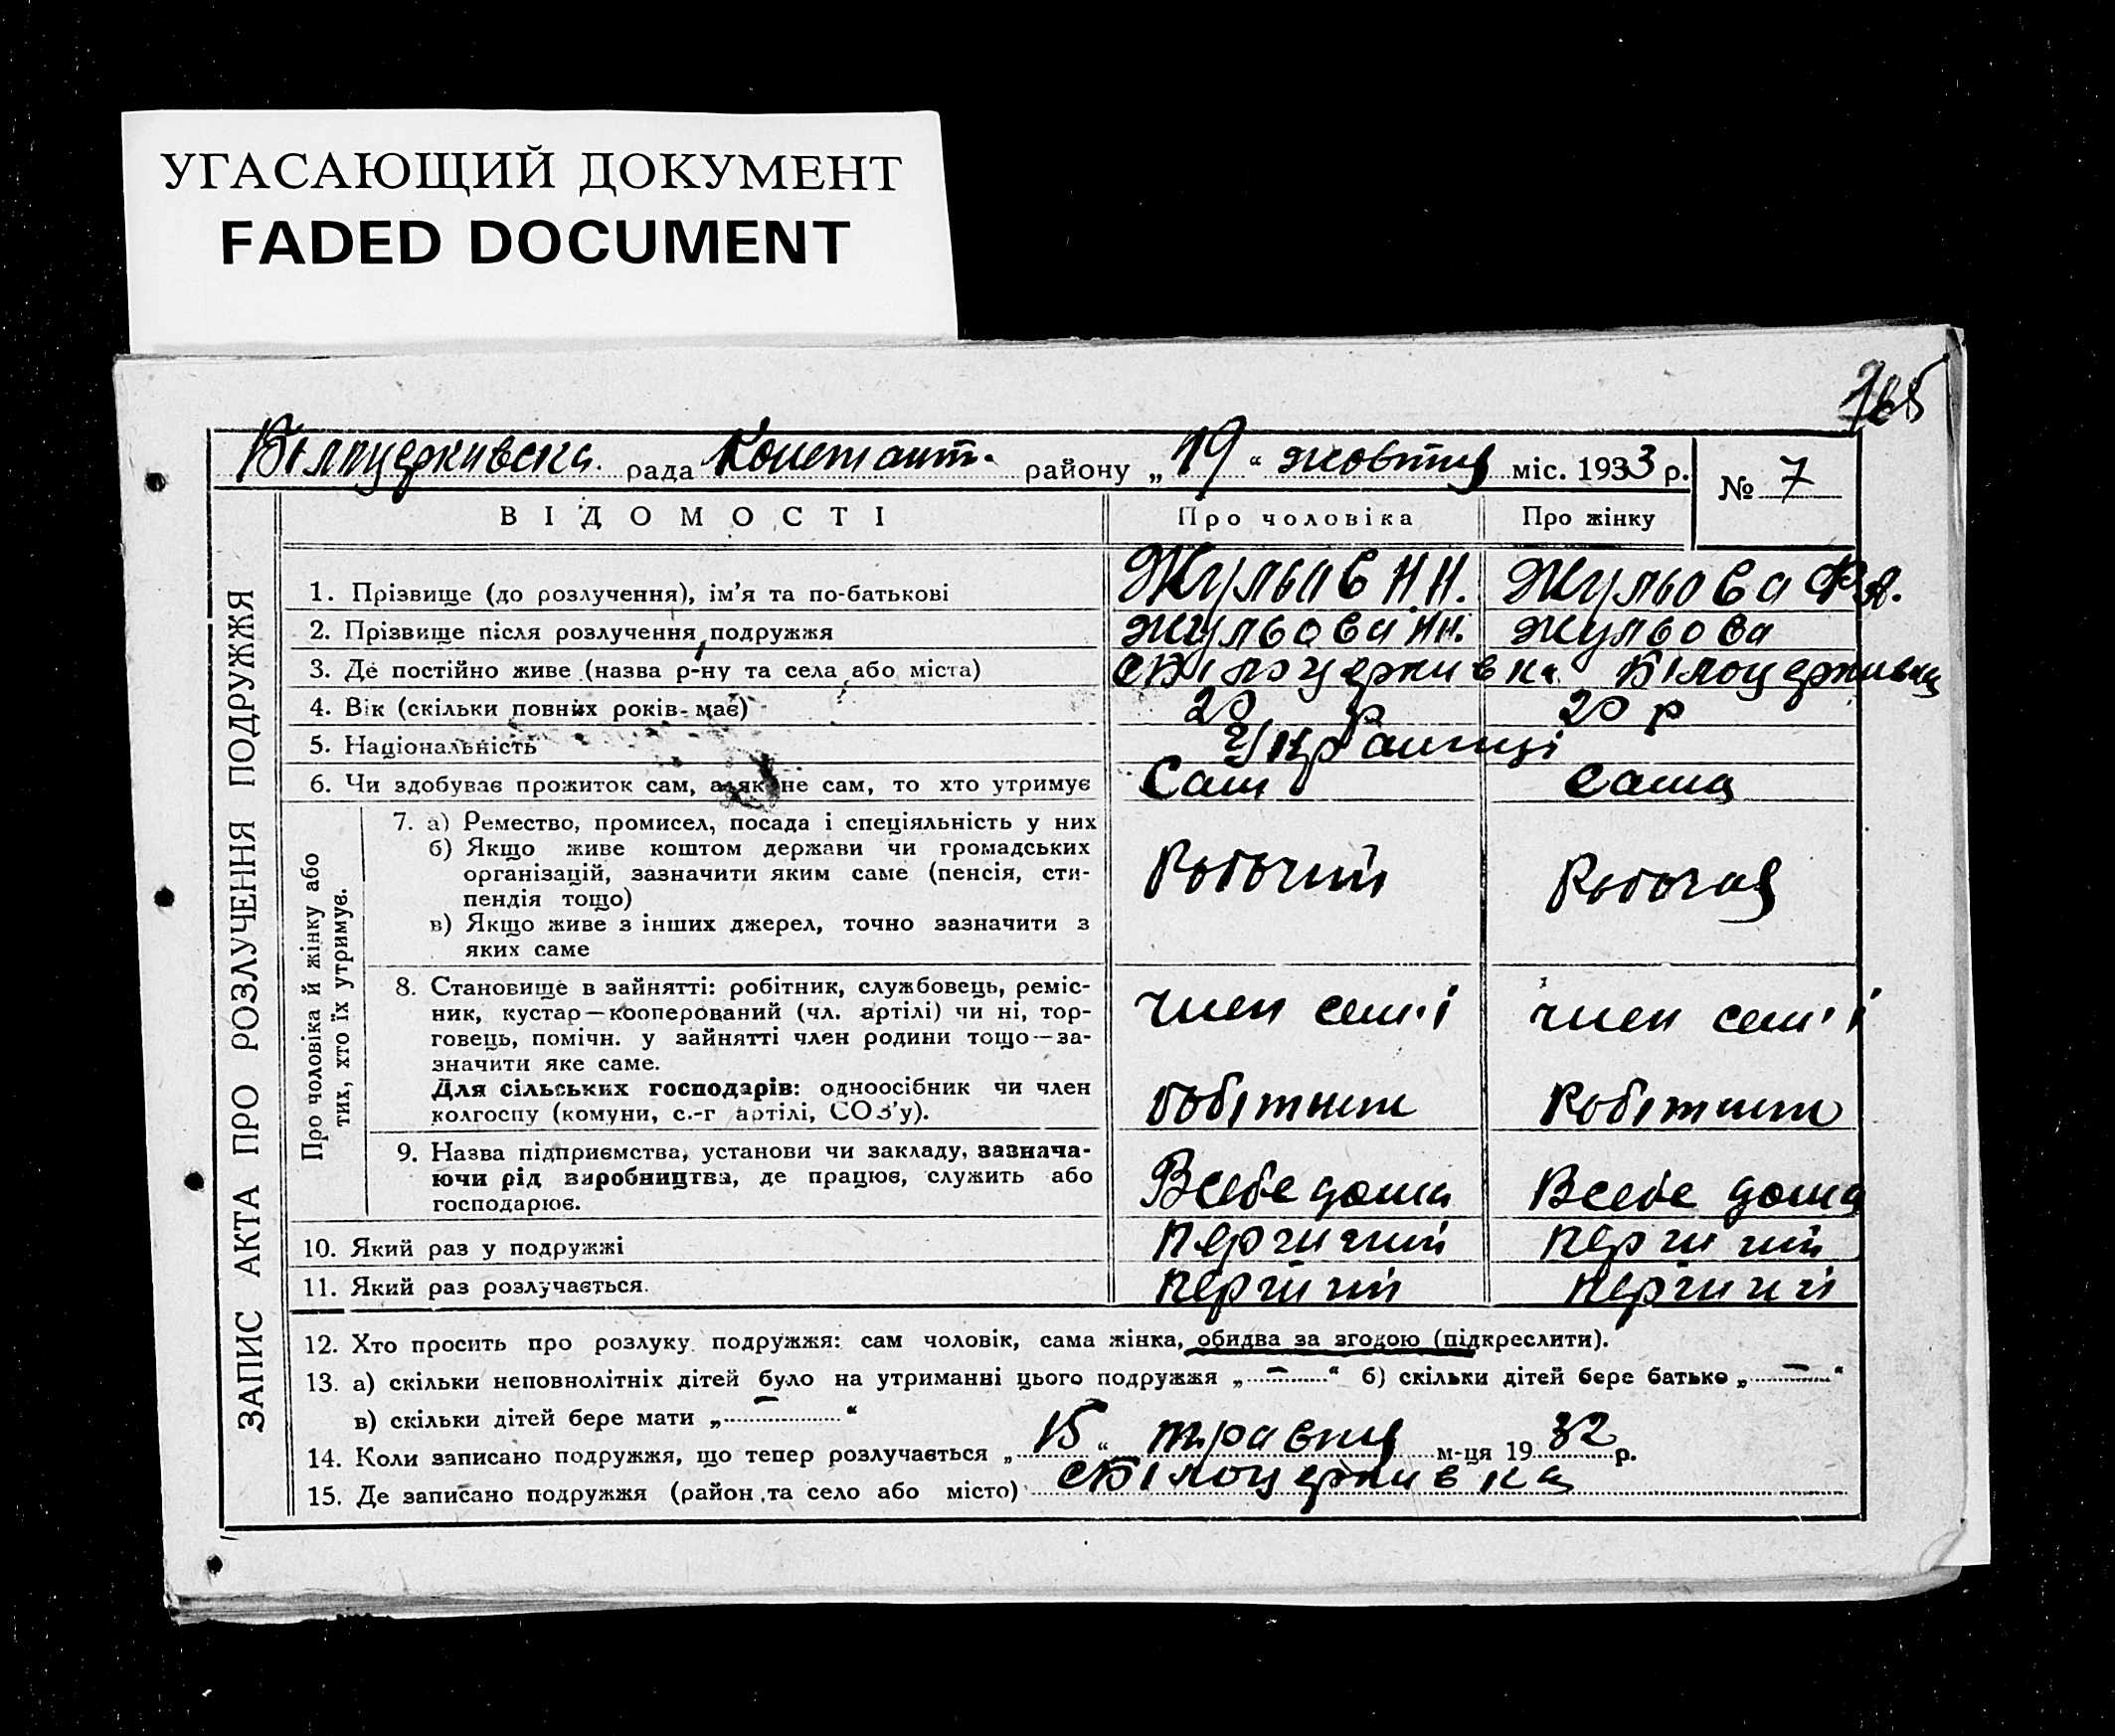 УГАСАЮЩИЙ ДОКУМЕНТ
FADED DOCUMENT
165
Білоцерківська рада Констант. району „19“ жовтня міс. 1933 р. № 7
ЗАПИС АКТА ПРО РОЗЛУЧЕННЯ ПОДРУЖЖЯ
ВІДОМОСТІ Про чоловіка Про жінку
1. Прізвище (до розлучення), ім'я та по-батькові Жульов Н.Н. Жульова Ф.Я.
2. Прізвище після розлучення подружжя Жульова Н.Н. Жульова
3. Де постійно живе (назва р-ну та села або міста) с Білоцерківка Білоцерківка
4. Вік (скільки повних років має) 20 р 20 р
5. Національність Українці
6. Чи здобуває прожиток сам, а як не сам, то хто утримує Сам Сама
Про чоловіка й жінку або
тих, хто їх утримує.
7. а) Ремество, промисел, посада і спеціяльність у них
б) Якщо живе коштом держави чи громадських
організацій, зазначити яким саме (пенсія, сти-
пендія тощо) Робочий Робочая
в) Якщо живе з інших джерел, точно зазначити з
яких саме
8. Становище в зайнятті: робітник, службовець, реміс-
ник, кустар—кооперований (чл. артілі) чи ні, тор- член сем'ї член сем'ї
говець, помічн. у зайнятті член родини тощо—за-
значити яке саме.
Для сільських господарів: одноосібник чи член
колгоспу (комуни, с.-г артілі, СОЗ'у). робітник Робітник
9. Назва підприємства, установи чи закладу, зазнача-
ючи рід виробництва, де працює, служить або Всебе дома Всебе дома
господарює.
10. Який раз у подружжі перший перший
11. Який раз розлучається. перший перший
12. Хто просить про розлуку подружжя: сам чоловік, сама жінка, обидва за згодою (підкреслити).
13. а) скільки неповнолітніх дітей було на утриманні цього подружжя „—“ б) скільки дітей бере батько „—“
в) скільки дітей бере мати „—“
14. Коли записано подружжя, що тепер розлучається „15“ травня м-ця 1932 р.
15. Де записано подружжя (район та село або місто) с Білоцерківка